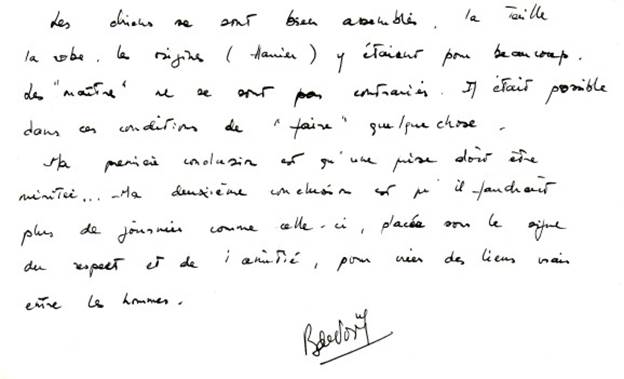 Les chiens se sont bien assemblés, la taille
la robe, les origines ( Hamier ) y étaient pour beaucoup.
Les "maître" ne se sont pas contrariés. Il était possible
dans ces conditions de "faire" quelque chose.
Ma première conclusion est qu'une prise doit être
méritée... Ma deuxième conclusion est qu'il faudrait
plus de journées comme celle-ci, placée sous le signe
du respect et de l'amitié, pour créer des liens vrais
entre les hommes.